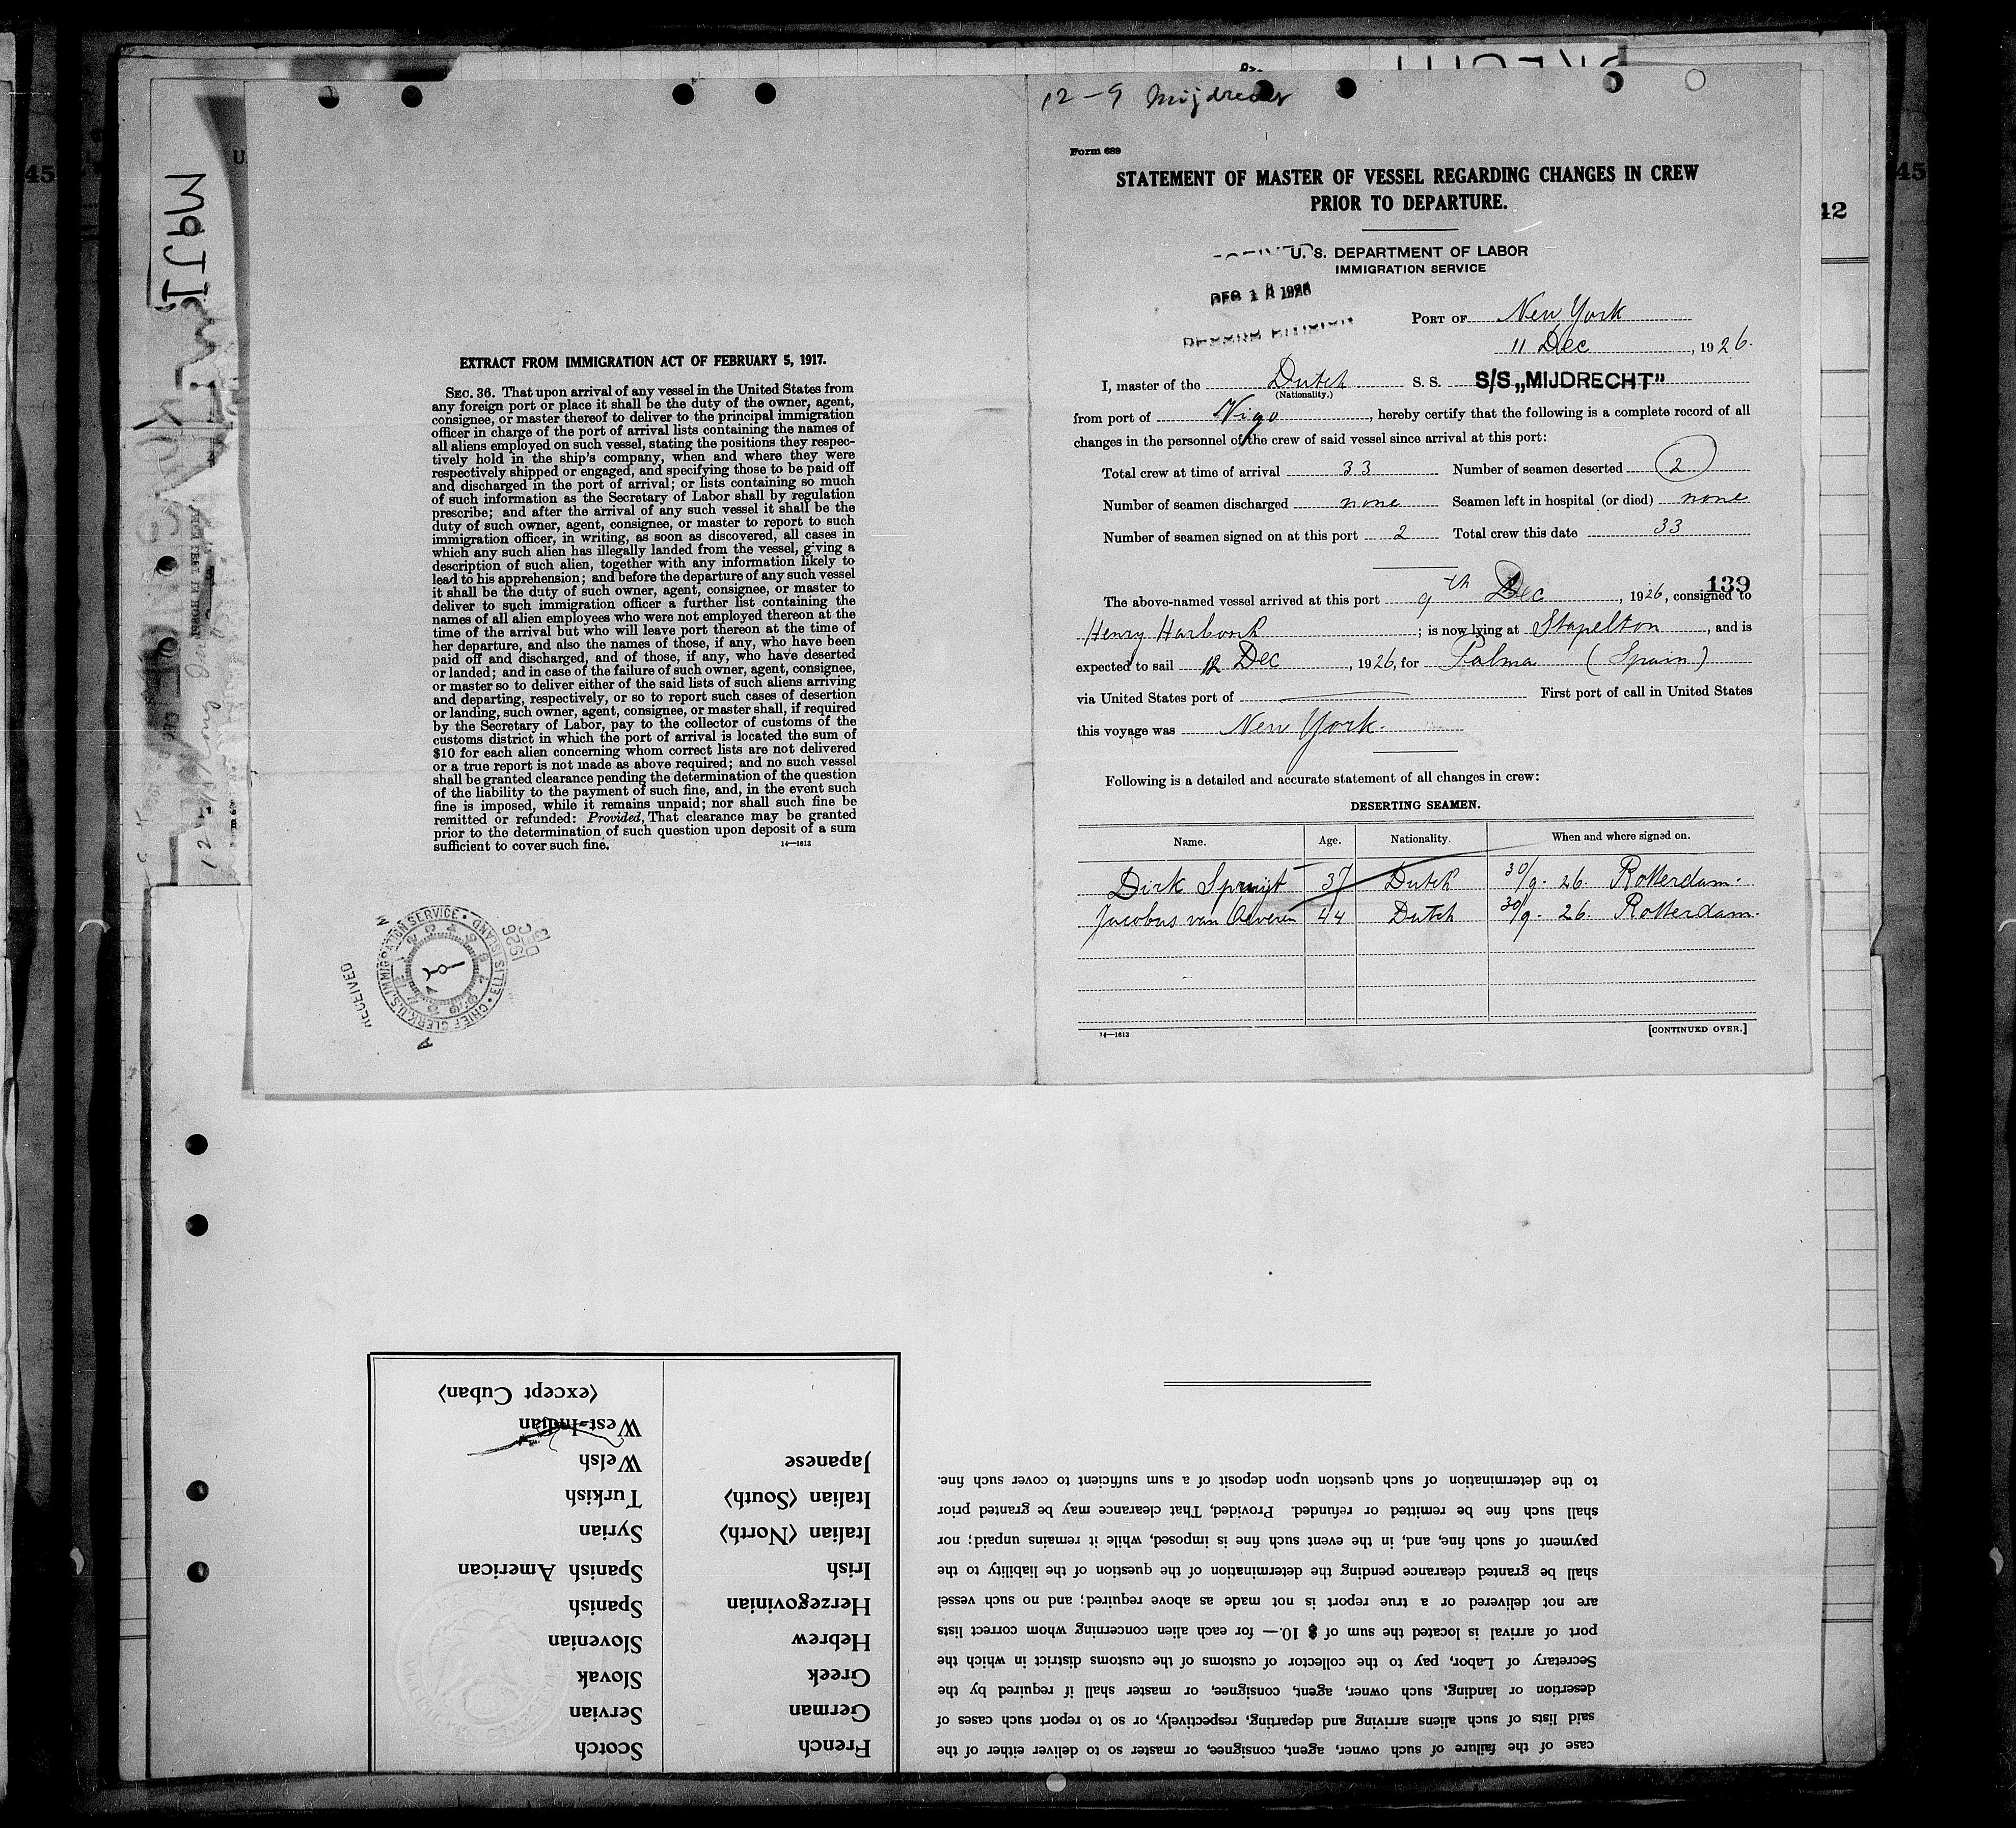 12-9 Mijdrecht
Form 689
STATEMENT OF MASTER OF VESSEL REGARDING CHANGES IN CREW
PRIOR TO DEPARTURE.
U. S. DEPARTMENT OF LABOR
IMMIGRATION SERVICE
PORT OF New York
11 Dec, 1926.
I, master of the Dutch S. S. S/S „MIJDRECHT”
(Nationality.)
from port of Vigo, hereby certify that the following is a complete record of all
changes in the personnel of the crew of said vessel since arrival at this port:
Total crew at time of arrival 33 Number of seamen deserted 2
Number of seamen discharged none Seamen left in hospital (or died) none
Number of seamen signed on at this port 2 Total crew this date 33
139
The above-named vessel arrived at this port 9th Dec, 1926, consigned to
Henry ; is now lying at Stapelton, and is
expected to sail 12 Dec, 1926, for Palma (Spain)
via United States port of First port of call in United States
this voyage was New York.
Following is a detailed and accurate statement of all changes in crew:
DESERTING SEAMEN.
Name. Age. Nationality. When and where signed on.
Dirk Spruijt 37 Dutch 30/9. 26. Rotterdam.
Jacobus van Oeveren 44 Dutch 30/9. 26. Rotterdam.
14—1613 [CONTINUED OVER.]
EXTRACT FROM IMMIGRATION ACT OF FEBRUARY 5, 1917.
SEC. 36. That upon arrival of any vessel in the United States from
any foreign port or place it shall be the duty of the owner, agent,
consignee, or master thereof to deliver to the principal immigration
officer in charge of the port of arrival lists containing the names of
all aliens employed on such vessel, stating the positions they respec-
tively hold in the ship's company, when and where they were
respectively shipped or engaged, and specifying those to be paid off
and discharged in the port of arrival; or lists containing so much
of such information as the Secretary of Labor shall by regulation
prescribe; and after the arrival of any such vessel it shall be the
duty of such owner, agent, consignee, or master to report to such
immigration officer, in writing, as soon as discovered, all cases in
which any such alien has illegally landed from the vessel, giving a
description of such alien, together with any information likely to
lead to his apprehension; and before the departure of any such vessel
it shall be the duty of such owner, agent, consignee, or master to
deliver to such immigration officer a further list containing the
names of all alien employees who were not employed thereon at the
time of the arrival but who will leave port thereon at the time of
her departure, and also the names of those, if any, who have been
paid off and discharged, and of those, if any, who have deserted
or landed; and in case of the failure of such owner, agent, consignee,
or master so to deliver either of the said lists of such aliens arriving
and departing, respectively, or so to report such cases of desertion
or landing, such owner, agent, consignee, or master shall, if required
by the Secretary of Labor, pay to the collector of customs of the
customs district in which the port of arrival is located the sum of
$10 for each alien concerning whom correct lists are not delivered
or a true report is not made as above required; and no such vessel
shall be granted clearance pending the determination of the question
of the liability to the payment of such fine, and, in the event such
fine is imposed, while it remains unpaid; nor shall such fine be
remitted or refunded: Provided, That clearance may be granted
prior to the determination of such question upon deposit of a sum
sufficient to cover such fine.
14—1613
RECEIVED
CHIEF CLERK, U.S. IMMIGRATION SERVICE • ELLIS ISLAND •
DEC
1926
42
45
45
case of the failure of such owner, agent, consignee, or master so to deliver either of the
said lists of such aliens arriving and departing, respectively, or so to report such cases of
desertion or landing, such owner, agent, consignee, or master shall if required by the
Secretary of Labor, pay to the collector of customs of the customs district in which the
port of arrival is located the sum of $ 10.— for each alien concerning whom correct lists
are not delivered or a true report is not made as above required; and no such vessel
shall be granted clearance pending the determination of the question of the liability to the
payment of such fine, and, in the event such fine is imposed, while it remains unpaid; nor
shall such fine be remitted or refunded. Provided, That clearance may be granted prior
to the determination of such question upon deposit of a sum sufficient to cover such fine.
French Scotch
German Servian
Greek Slovak
Hebrew Slovenian
Herzegovinian Spanish
Irish Spanish American
Italian (North) Syrian
Italian (South) Turkish
Japanese Welsh
West-Indian
(except Cuban)